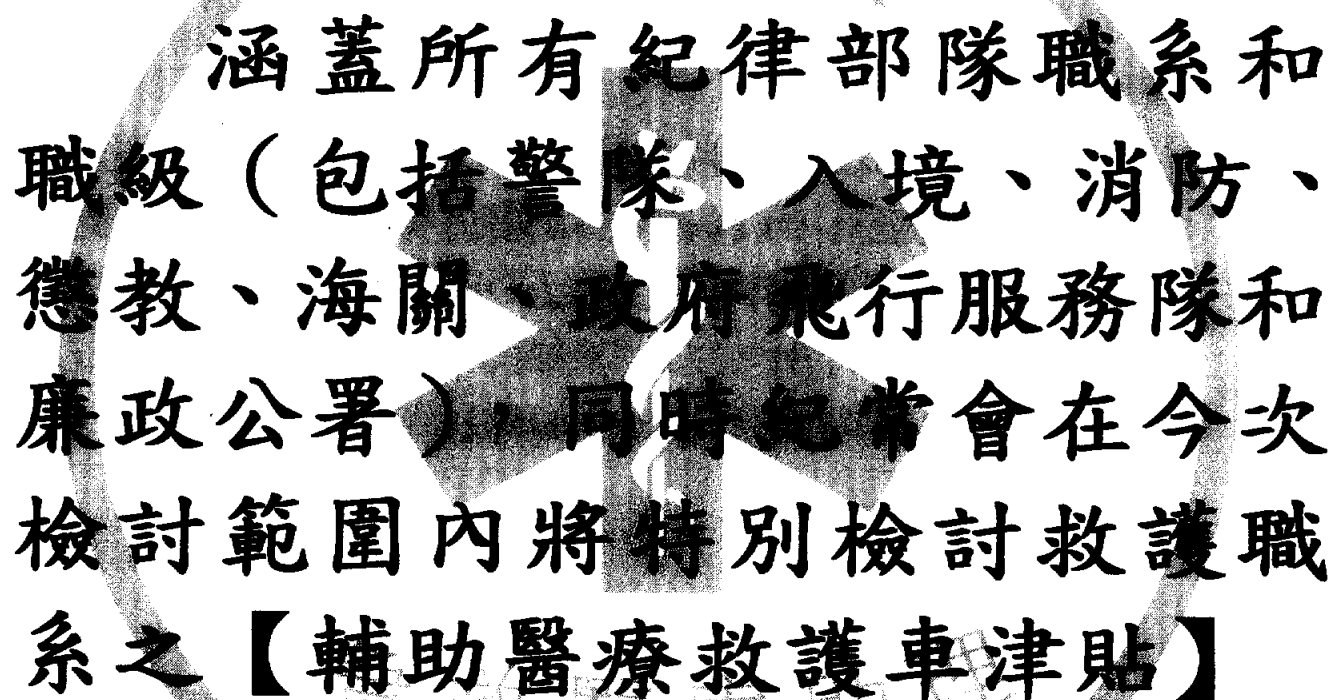 涵蓋所有紀律部隊職系和
職級（包括警隊、入境、消防、
懲教、海關、政府飛行服務隊和
廉政公署），同時紀常會在今次
檢討範圍內將特別檢討救護職
系之【輔助醫療救護車津貼】